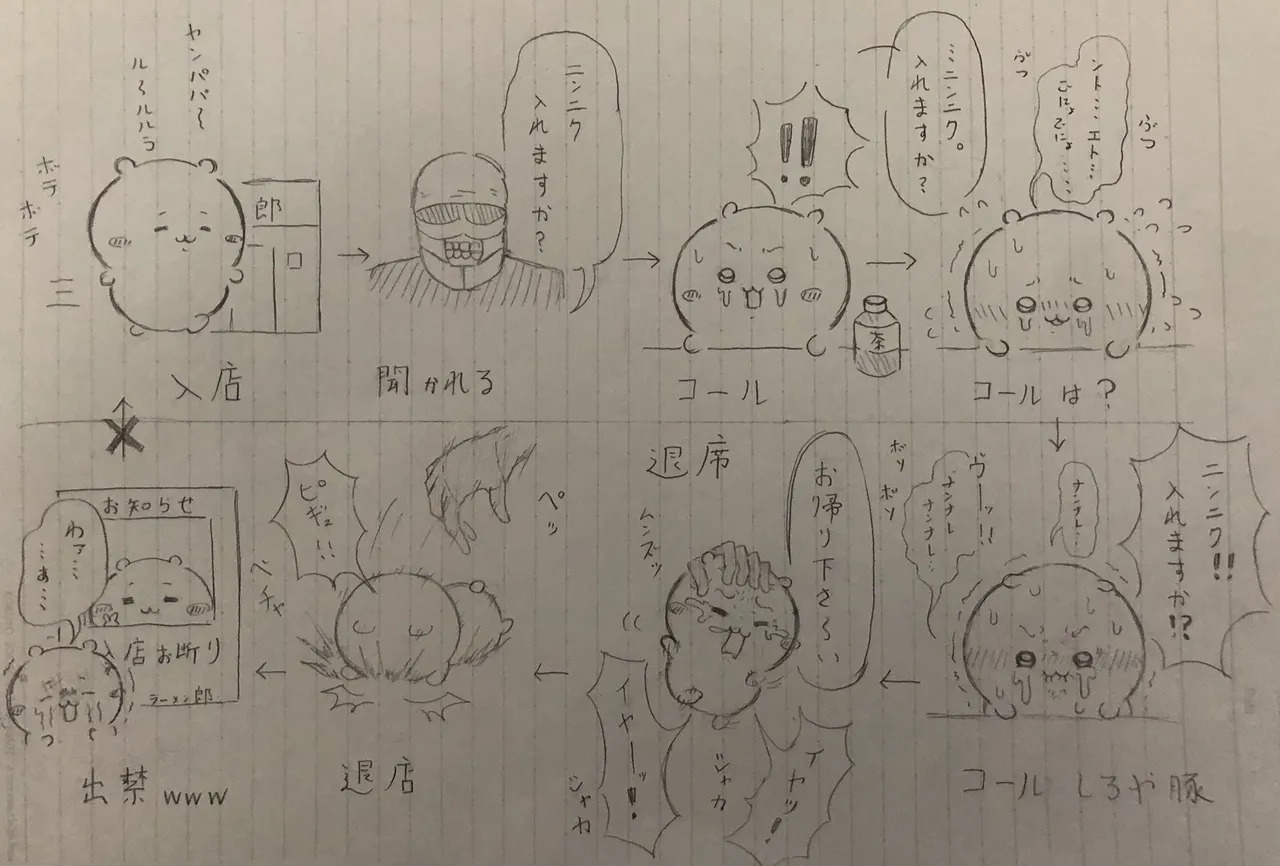 ヤンパパ〜
ル〜ルルラ
ボテ
ボテ
郎
入店
ニンニク
入れますか?
聞かれる
!!
茶
コール
ミニンニク。
入れますか?
ント…エト…
ごにょごにょ……
ぶつ
ぶつ
コールは?
ニンニク!!
入れますか!?
ナンナレ…
ヴーッ!!
ナンナレ
ナンナレ…
コールしろや豚
退席
お帰り下さ〜い
ボソ
ボソ
ムンズッ
イヤッ!
イヤーッ!
シャカ
シャカ
ペッ
ピギュ!!
ベチャ
退店
お知らせ
入店お断り
ラーメン郎
わァ…
…ぁ…
出禁www